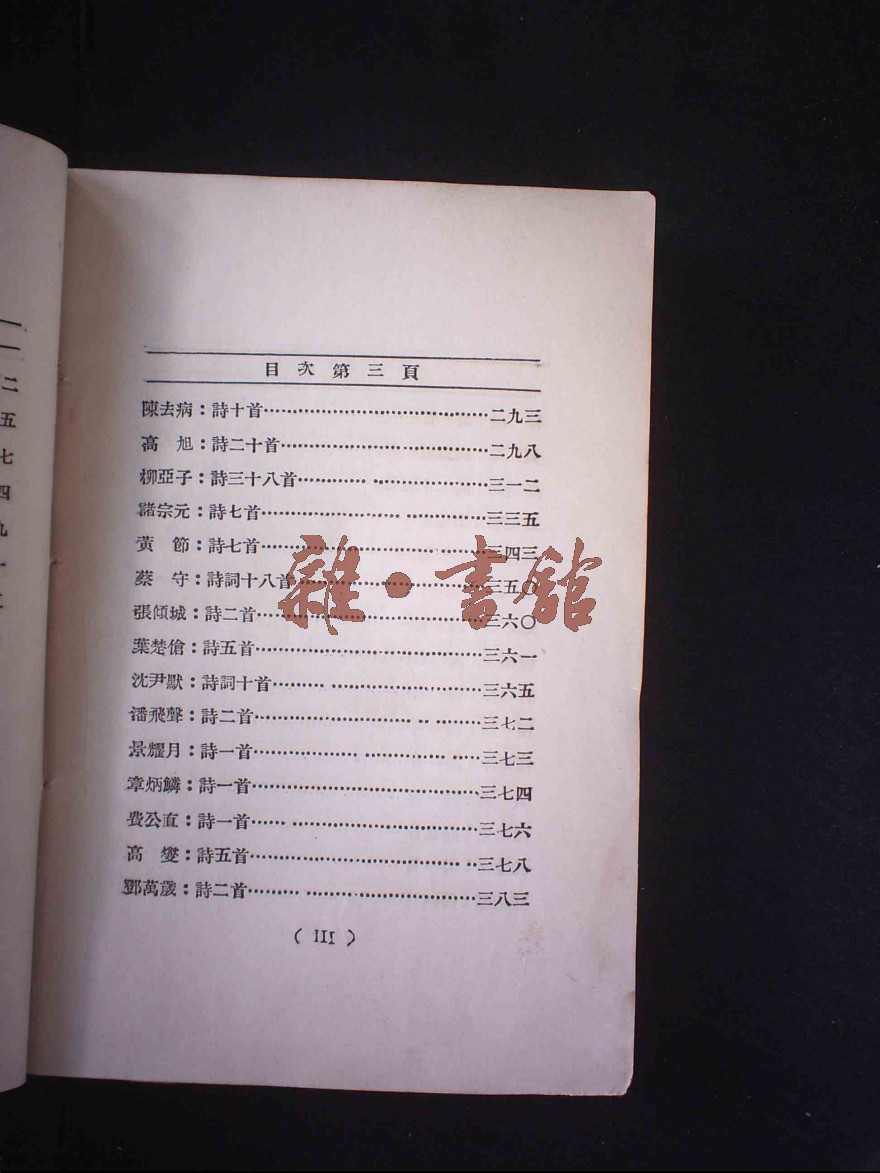 二
五
七
四
九
一
目次第三頁
陳去病：詩十首……………………………二九三
高　旭：詩二十首……………………………二九八
柳亞子：詩三十八首……………………………三一二
諸宗元：詩七首……………………………三三五
黃　節：詩七首……………………………三四三
蔡　守：詩詞十八首……………………………三五〇
張傾城：詩二首……………………………三六〇
葉楚傖：詩五首……………………………三六一
沈尹默：詩詞十首……………………………三六五
潘飛聲：詩二首……………………………三七二
景耀月：詩一首……………………………三七三
章炳鱗：詩一首……………………………三七四
費公直：詩一首……………………………三七六
高　燮：詩五首……………………………三七八
鄧萬歲：詩二首……………………………三八三
( III )
雜·書館